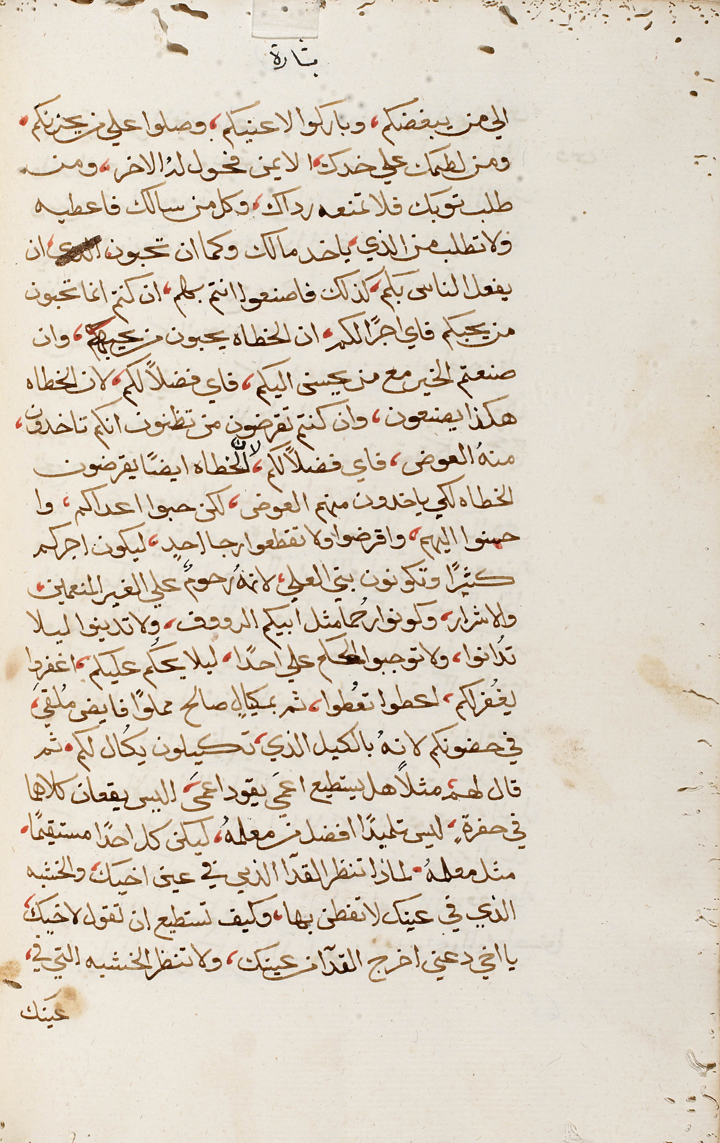 بشارة
الي من يبغضكم، وباركوا لاعنيكم، وصلوا علي من يحزنكم.
ومن لطمك علي خدك الايمن فحول له الاخر، ومن
طلب توبك فلا تمنعه رداك، وكل من سالك فاعطيه
ولا تطلب من الذي ياخد مالك وكما ان تحبون ان
يفعل الناس بكم، كذلك فاصنعوا انتم بهم، ان كنتم انما تحبون
من يحبكم فاي اجرًا لكم، ان الخطاه يحبون من يحبهم، وان
صنعتم الخير مع من يحسن اليكم، فاي فضلًا لكم، لان الخطاه
هكذا يصنعون، وان كنتم تقرضون من تظنون انكم تاخدون،
منهُ العوض، فاي فضلًا لكم، لان الخطاه ايضًا يقرضون
الخطاه لكي ياخدون منهم العوض، لكن حبوا اعداكم، وا
حسنوا اليهم، واقرضوا ولا تقطعوا رجا احدٍ، ليكون اجركم
كثيرًا وتكونون بني العلي، لانهُ رحومٌ علي الغير المنعمين،
والاشرار، وكونوا رحما مثل ابيكم الرووف، ولا تدينوا ليلا
تدانوا، ولا توجبوا الحكم علي احدًا، ليلا يحكم عليكم، اغفروا
يغفر لكم، اعطوا تعُطوا، ثم بمكيالٍ صالح مملوًا فايض مُلقي،
في حضونكم لانهُ بالكيل الذي تكيلون يكال لكم. ثم
قال لهم مثلًا هل يستطيع اعمي يقود اعمي، اليس يقعان كلاهما
في حفرةٍ، ليس تلميدًا افضل من معلمهُ، ليكن كل احدًا مستقيمًا،
مثل معلمهُ. لماذا تنظر القدا الذي في عين اخيك، والخشبه
الذي في عينك لا تفطن بها، وكيف تستطيع ان تقول لاخيك،
يا اخي دعني اخرج القدا من عينك، ولا تنظر الخشبه التي في،
عينك